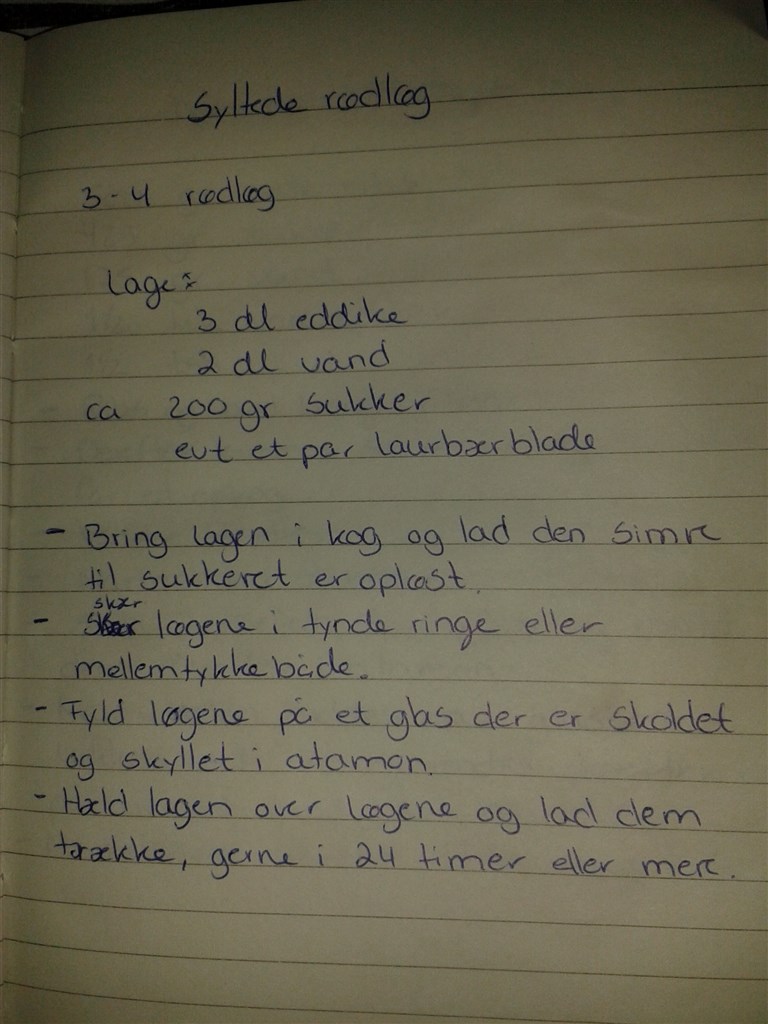 Syltede rødløg
3-4 rødløg
Lage:
3 dl eddike
2 dl vand
ca 200 gr sukker
evt et par laurbærblade
- Bring lagen i kog og lad den simre
til sukkeret er opløst.
skær
- løgene i tynde ringe eller
mellemtykke både.
- Fyld løgene på et glas der er skoldet
og skyllet i atamon.
- Hæld lagen over løgene og lad dem
trække, gerne i 24 timer eller mere.